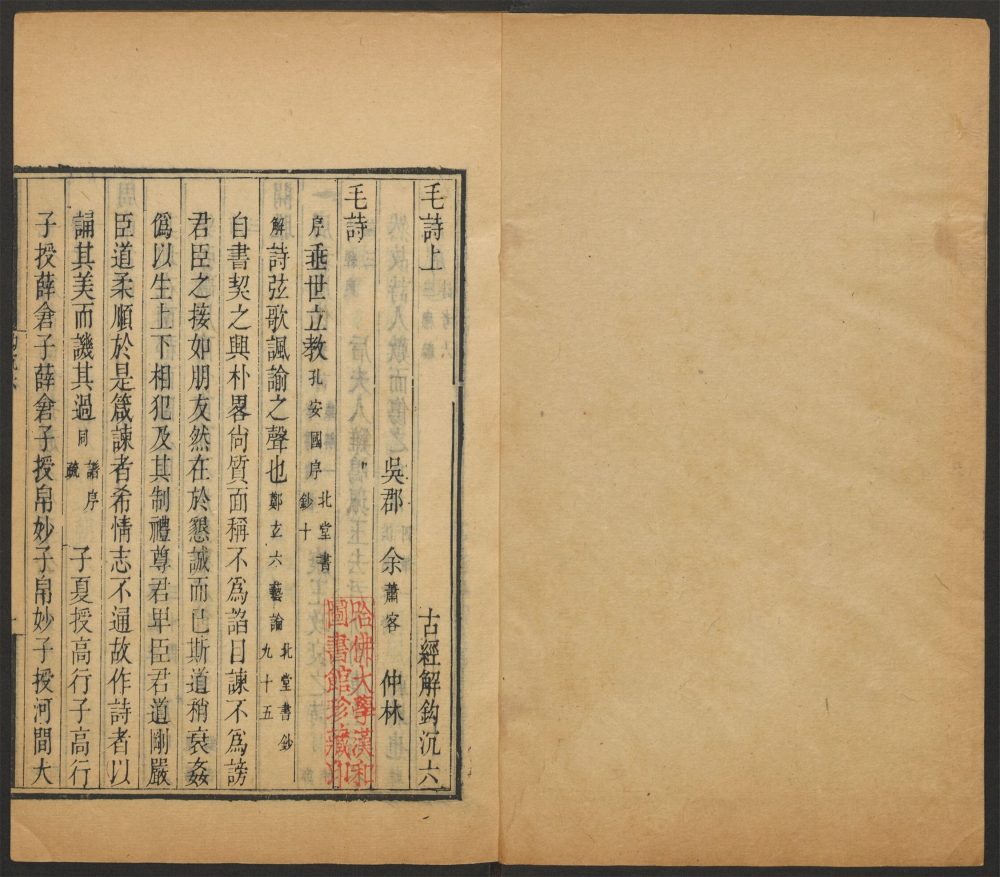 毛詩上 古經解鈎沉六
吳郡 余蕭客 仲林
毛詩
序垂世立教孔安國序北堂書鈔十
解詩弦歌諷諭之聲也鄭玄六藝論北堂書鈔九十五
自書契之興朴畧尙質面稱不爲謟目諫不爲謗
君臣之接如朋友然在於懇誠而已斯道稍衰姦
僞以生上下相犯及其制禮尊君卑臣君道剛嚴
臣道柔順於是箴諫者希情志不通故作詩者以
誦其美而譏其過同譜序疏 子夏授高行子高行
子授薛倉子薛倉子授帛妙子帛妙子授河間大
哈佛大學漢和
圖書館珍藏印